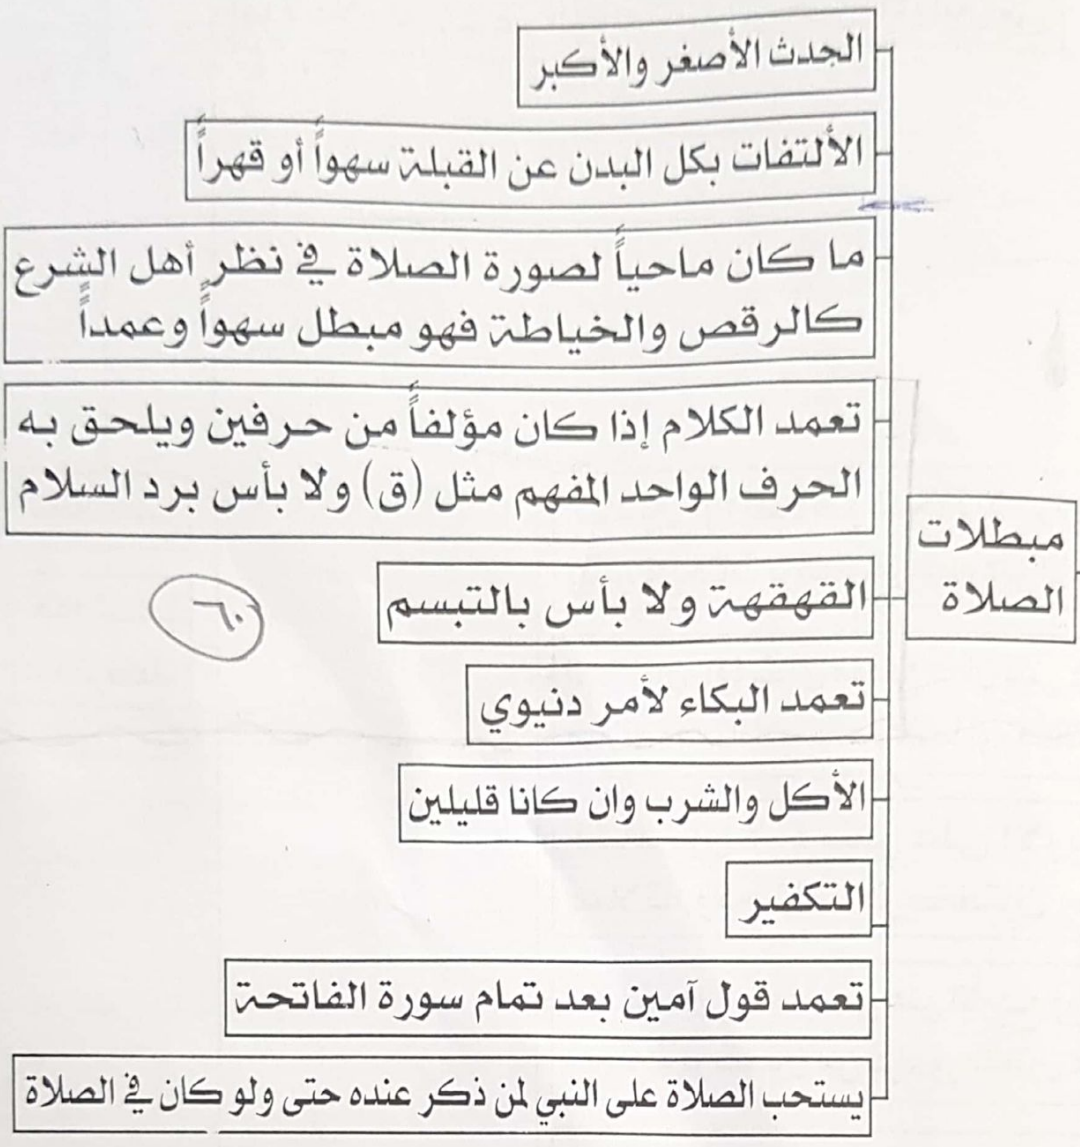 مبطلات
الصلاة
الحدث الأصغر والأكبر
الألتفات بكل البدن عن القبلة سهواً أو قهراً
ما كان ماحياً لصورة الصلاة في نظر أهل الشرع
كالرقص والخياطة فهو مبطل سهواً وعمداً
تعمد الكلام إذا كان مؤلفاً من حرفين ويلحق به
الحرف الواحد المفهم مثل (ق) ولا بأس برد السلام
القهقهة ولا بأس بالتبسم
٦٠
تعمد البكاء لأمر دنيوي
الأكل والشرب وان كانا قليلين
التكفير
تعمد قول آمين بعد تمام سورة الفاتحة
يستحب الصلاة على النبي لمن ذكر عنده حتى ولو كان في الصلاة